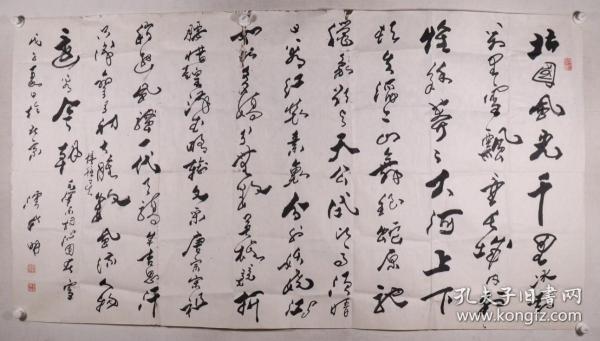 北国风光千里冰封
万里雪飘望长城内外
惟余莽莽大河上下
顿失滔滔山舞银蛇原驰
蜡象欲与天公试比高须晴
日看红装素裹分外妖娆江山
如此多娇引无数英雄竞折
腰惜秦皇汉武略输文采唐宗宋祖
稍逊风骚一代天骄成吉思汗
只识弯弓射大雕俱往矣数风流人物
还看今朝 毛泽东词沁园春雪
戊子夏日于北京
孔夫子旧书网
www.kongfz.com